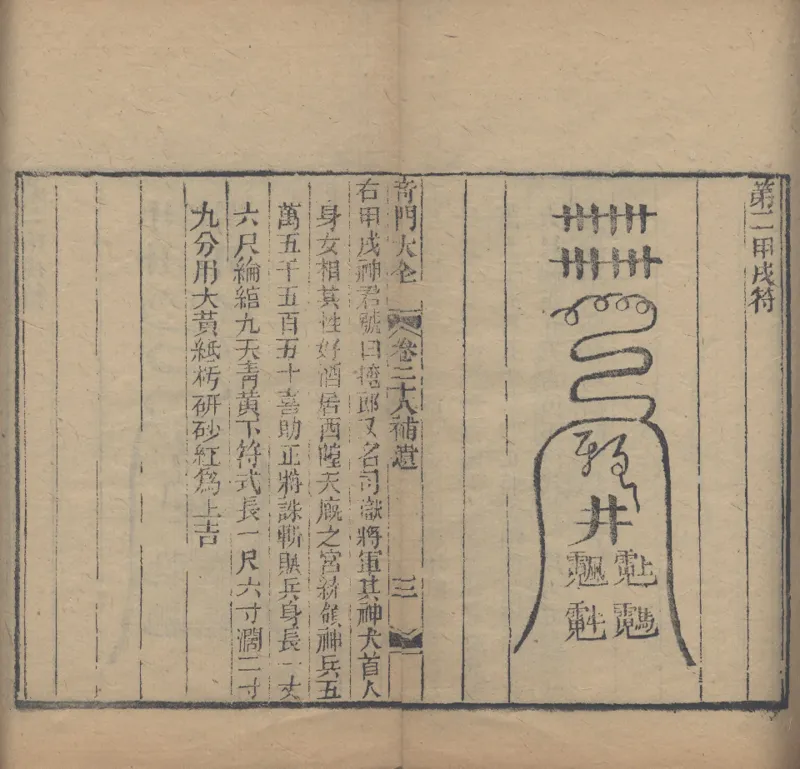 第二甲戌符
井
奇門大全 卷二十八補遺 三
右甲戌神君號曰 郎又名司獄將軍其神犬首人
身女相其性好酒居西陛天廐之宮 領神兵五
萬五千五百五十喜助正將誅斬賊兵身長一丈
六尺綸綰九天青黃下符式長一尺六寸濶二寸
九分用大黃紙朽研砂紅為上吉